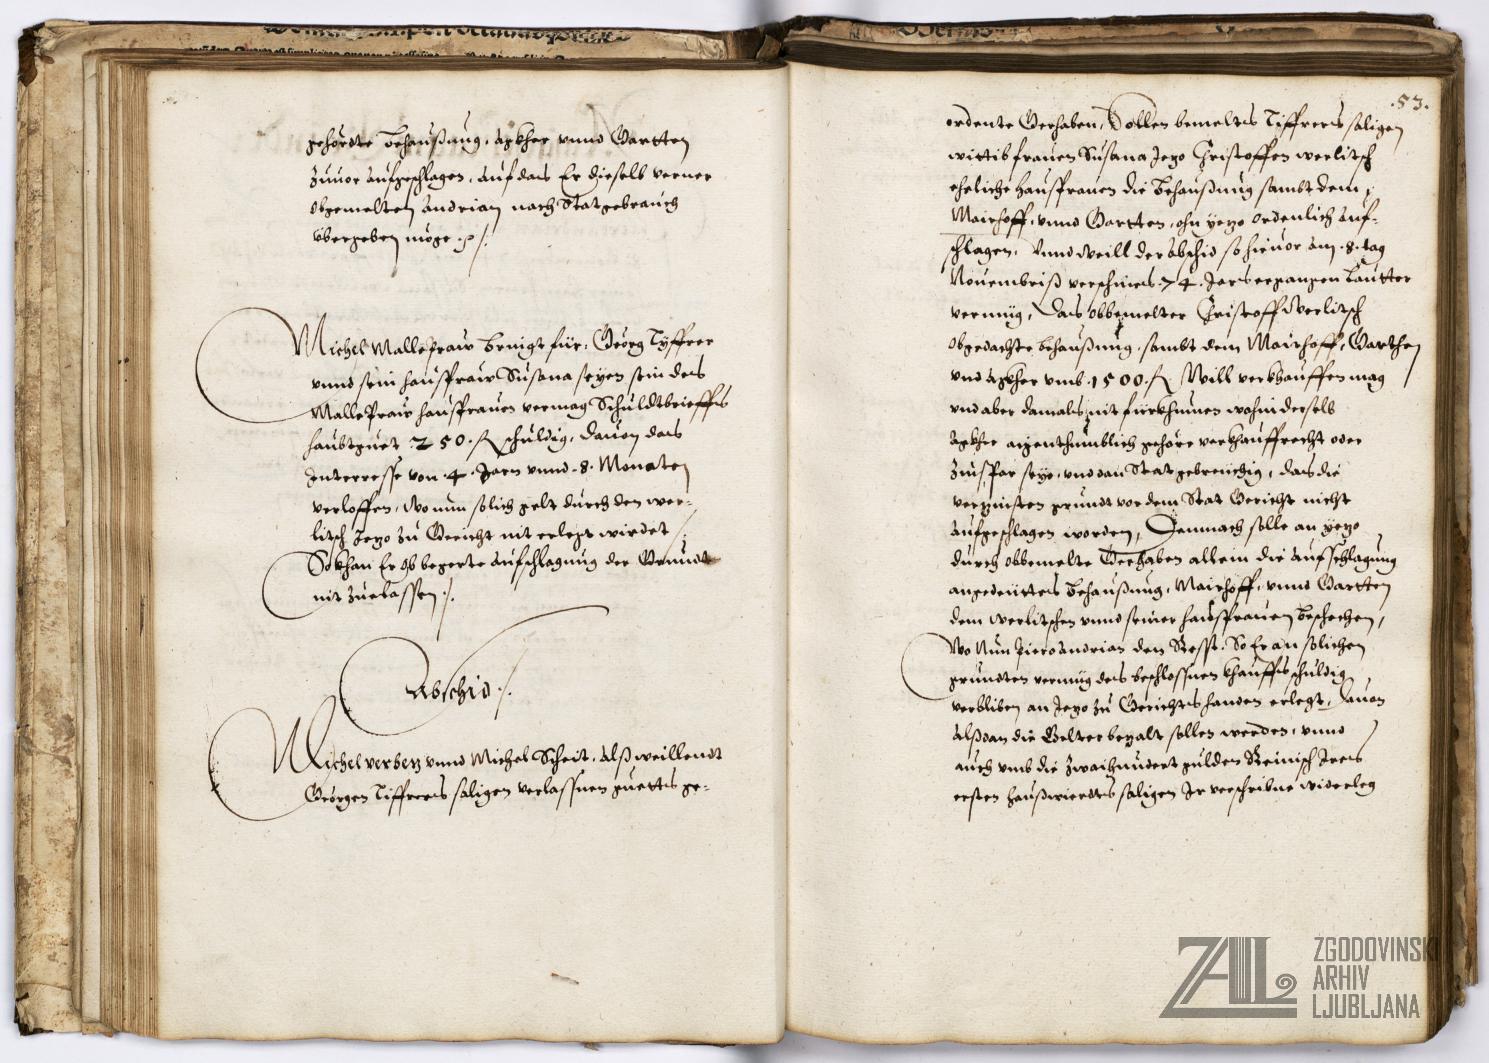 gehördte Behaußung, Agkher vnnd Gartten
zuuor aufgeschlagen, auf das Er dieselb verner
obgemelten Andrian nach Statgebrauch
vbergeben möge ./.
Michel Mallepraw bringt für, Geörg Tyffrer
vnnd sein hausfraw Susana seyen sein des
Mallepraw hausfrauen vermag Schuldtbrieffs
haubtguet 250. fl schuldig, dauon das
Interresse von .4. Jarn vnnd .8. Monaten
verloffen, Wo nun solich gelt durch den wer-
litsch Jezo zu Gericht nit erlegt wirdet
So khan Er Ob begerte aufschlagung der Gründt
nit zuelassen ./.
Abschid ./.
Michel verbetz vnnd Michel Scheit, Alß weillendt
Geörgen Tiffrers saligen verlassnen guetts ge-
.53.
ordente Gerhaben, Sollen bemelts Tiffrers saligen
wittib frauen Susana Jezo Christoffen werlitsch
eheliche hausfrauen die Behaußung sambt dem
Mairhoff, vnnd Gartten, ohn yezo ordenlich auf-
schlagen, Vnnd weill der Abschid so hieuor am .8. tag
Nouembriß verschines 74. Jars erganngen Lautter
vermüg, Das obbemelter Christoff Werlitsch
obgedachte behaußung, sambt dem Mairhoff, Garthen
vnd Agkher vmb .1500. fl Will verkhauffen mag
vnd aber damals nit fürkhumen wohin derselb
Agkher aigenthumblich gehöre verkhauffrecht oder
Zinspar seye, vnd dan Statgebreüchig, das die
verzinsten gründt vor dem Stat Gericht nicht
aufgeschlagen worden, Demnach solle an yezo
durch obbemelte Gerhaben allein die aufschlagung
angedeüttes Behaußung, Mairhoff, vnnd Gartten
dem werlitschen vnnd seiner hausfrauen beschechen,
Wo Nun hiero Andrian den Resst, So Er an solichen
gründten vermüg des beschlossnen khauffs schuldig
verbliben an Jezo zu Gerichts handen erlegt, dauon
alßdan die Gelter bezalt sollen werden, vnnd
auch vmb die zwaihundert gulden Reinisch Jres
ersten haußwierdts saligen Jr verschribne widerleg
ZAL
ZGODOVINSKI
ARHIV
LJUBLJANA